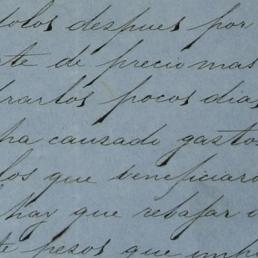 tolos despues por
te de precio mas
brarlos pocos dias
ha causado gastos
los que beneficiar
hay que rebajar
te pesos que